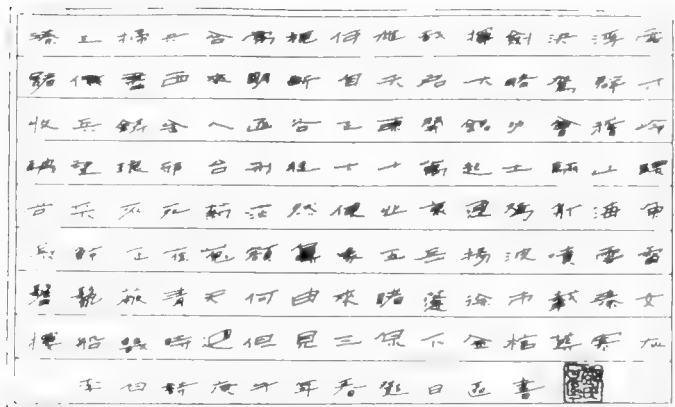 秦王掃六合虎視何雄哉揮劍決浮雲
諸侯盡西來明斷自天啟大略駕群才
收兵鑄金人函谷正東開銘功會稽嶺
騁望琅邪台刑徒七十萬起土驪山隈
尚采不死藥茫然使心哀連弩射海魚
長鯨正崔嵬額鼻象五岳揚波噴雲雷
鬐鬣蔽青天何由睹蓬萊徐巿載秦女
樓船幾時迴但見三泉下金棺葬寒灰
李白詩庚子年春日書